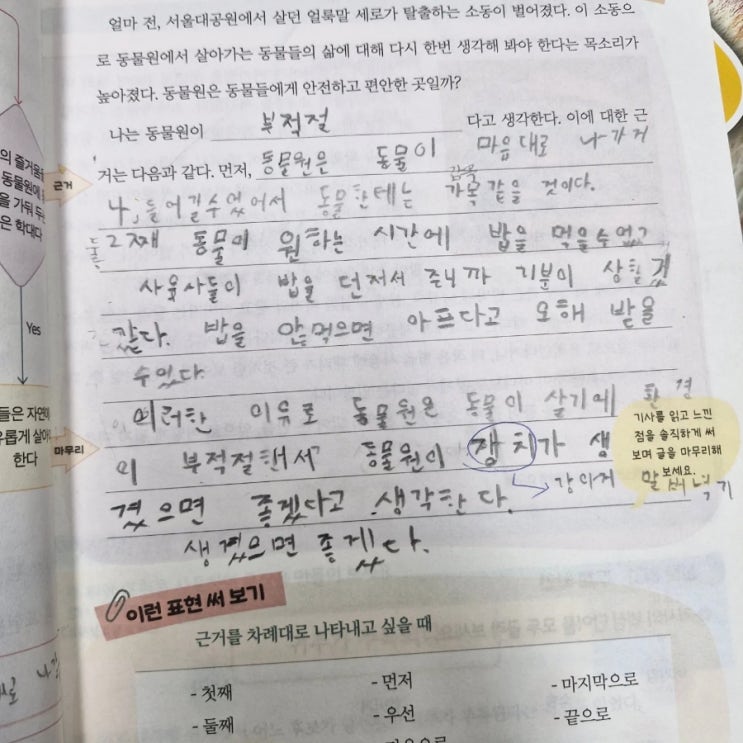 얼마 전, 서울대공원에서 살던 얼룩말 세로가 탈출하는 소동이 벌어졌다. 이 소동으
로 동물원에서 살아가는 동물들의 삶에 대해 다시 한번 생각해 봐야 한다는 목소리가
높아졌다. 동물원은 동물들에게 안전하고 편안한 곳일까?
나는 동물원이 부적절 다고 생각한다. 이에 대한 근
거는 다음과 같다. 먼저, 동물원은 동물이 마음대로 나가거
근거
감옥
나, 들어갈수 없어서 동물한테는 가목 같을 것이다.
둘
2째 동물이 원하는 시간에 밥을 먹을수 없고
사육사들이 밥을 던져서 주니까 기분이 상할 것
같다. 밥을 안먹으면 아프다고 오해 받을
수있다.
이러한 이유로 동물원은 동물이 살기에 환경
마무리
이 부적절해서 동물원이 장치가 생
겼으면 좋겠다고 생각한다.
생겼으면 좋겠다.
기사를 읽고 느낀
점을 솔직하게 써
보며 글을 마무리해
보세요.
Yes
의 즐거움
동물원에
을 가둬 두
은 학대다
들은 자연에
유롭게 살아
한다
이런 표현 써 보기
근거를 차례대로 나타내고 싶을 때
- 첫째 - 먼저 - 마지막으로
- 둘째 - 우선 - 끝으로